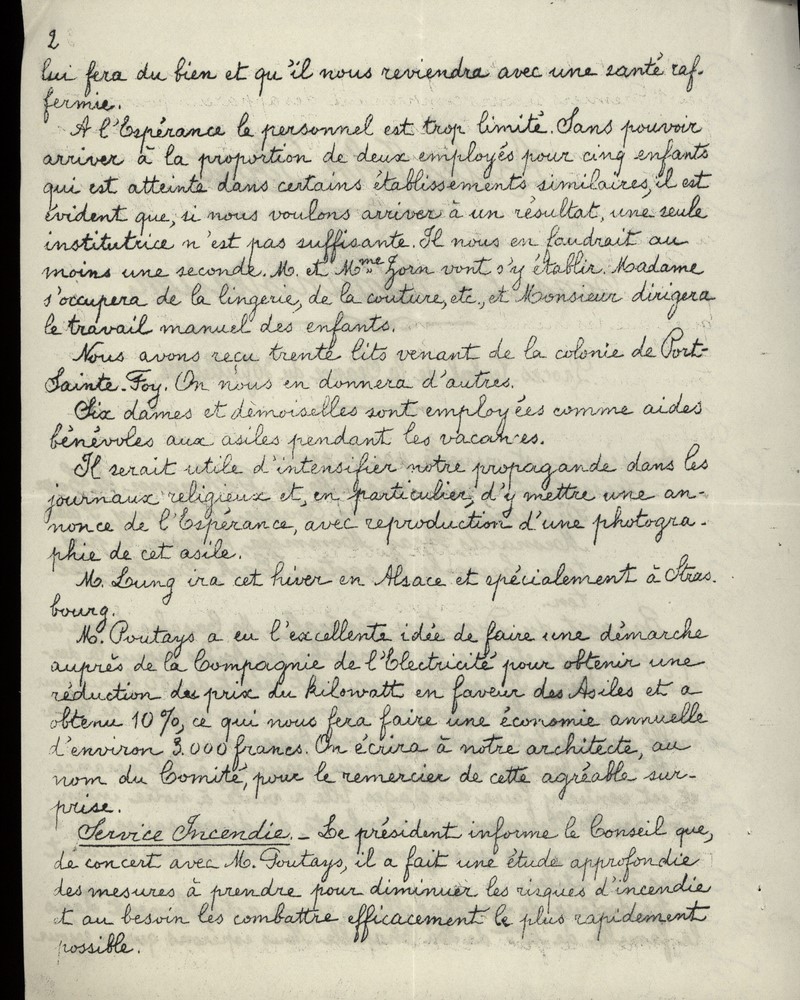 2
lui fera du bien et qu'il nous reviendra avec une santé raf-
fermie.
A l'Espérance le personnel est trop limité. Sans pouvoir
arriver à la proportion de deux employés pour cinq enfants
qui est atteinte dans certains établissements similaires, il est
évident que, si nous voulons arriver à un résultat, une seule
institutrice n'est pas suffisante. Il nous en faudrait au
moins une seconde. M. et Mme Zorn vont s'y établir. Madame
s'occupera de la lingerie, de la couture, etc., et Monsieur dirigera
le travail manuel des enfants.
Nous avons reçu trente lits venant de la colonie de Port-
Sainte-Foy. On nous en donnera d'autres.
Six dames et demoiselles sont employées comme aides
bénévoles aux asiles pendant les vacances.
Il serait utile d'intensifier notre propagande dans les
journaux religieux et, en particulier, d'y mettre une an-
nonce de l'Espérance, avec reproduction d'une photogra-
phie de cet asile.
M. Lung ira cet hiver en Alsace et spécialement à Stras-
bourg.
M. Poutays a eu l'excellente idée de faire une démarche
auprès de la Compagnie de l'Electricité pour obtenir une
réduction des prix du kilowatt en faveur des Asiles et a
obtenu 10 %, ce qui nous fera faire une économie annuelle
d'environ 3.000 francs. On écrira à notre architecte, au
nom du Comité, pour le remercier de cette agréable sur-
prise.
Service Incendie. - Le président informe le Conseil que,
de concert avec M. Poutays, il a fait une étude approfondie
des mesures à prendre pour diminuer les risques d'incendie
et au besoin les combattre efficacement le plus rapidement
possible.